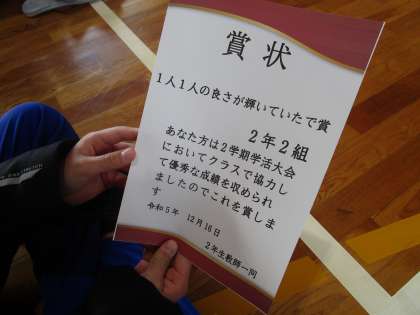 賞状
1人1人の良さが輝いていたで賞
2年2組
あなた方は2学期学活大会
においてクラスで協力し
て優秀な成績を収められ
ましたのでこれを賞しま
す
令和5年 12月16日
2年生教師一同